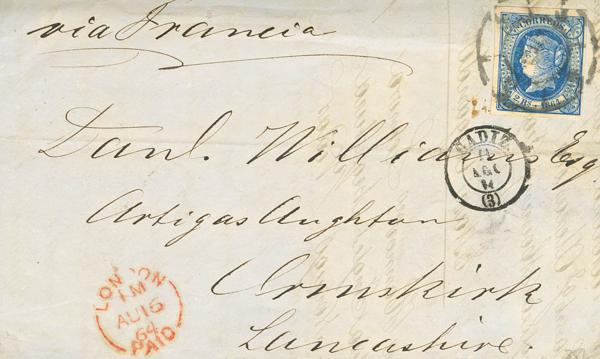 via Francia
CORREOS
2 Rs.
Danl. Williams Esq.
CADIZ
AGO
64
(3)
Artigas Aughton
Ormskirk
Lancashire.
LONDON
1M
AU 16
64
PAID